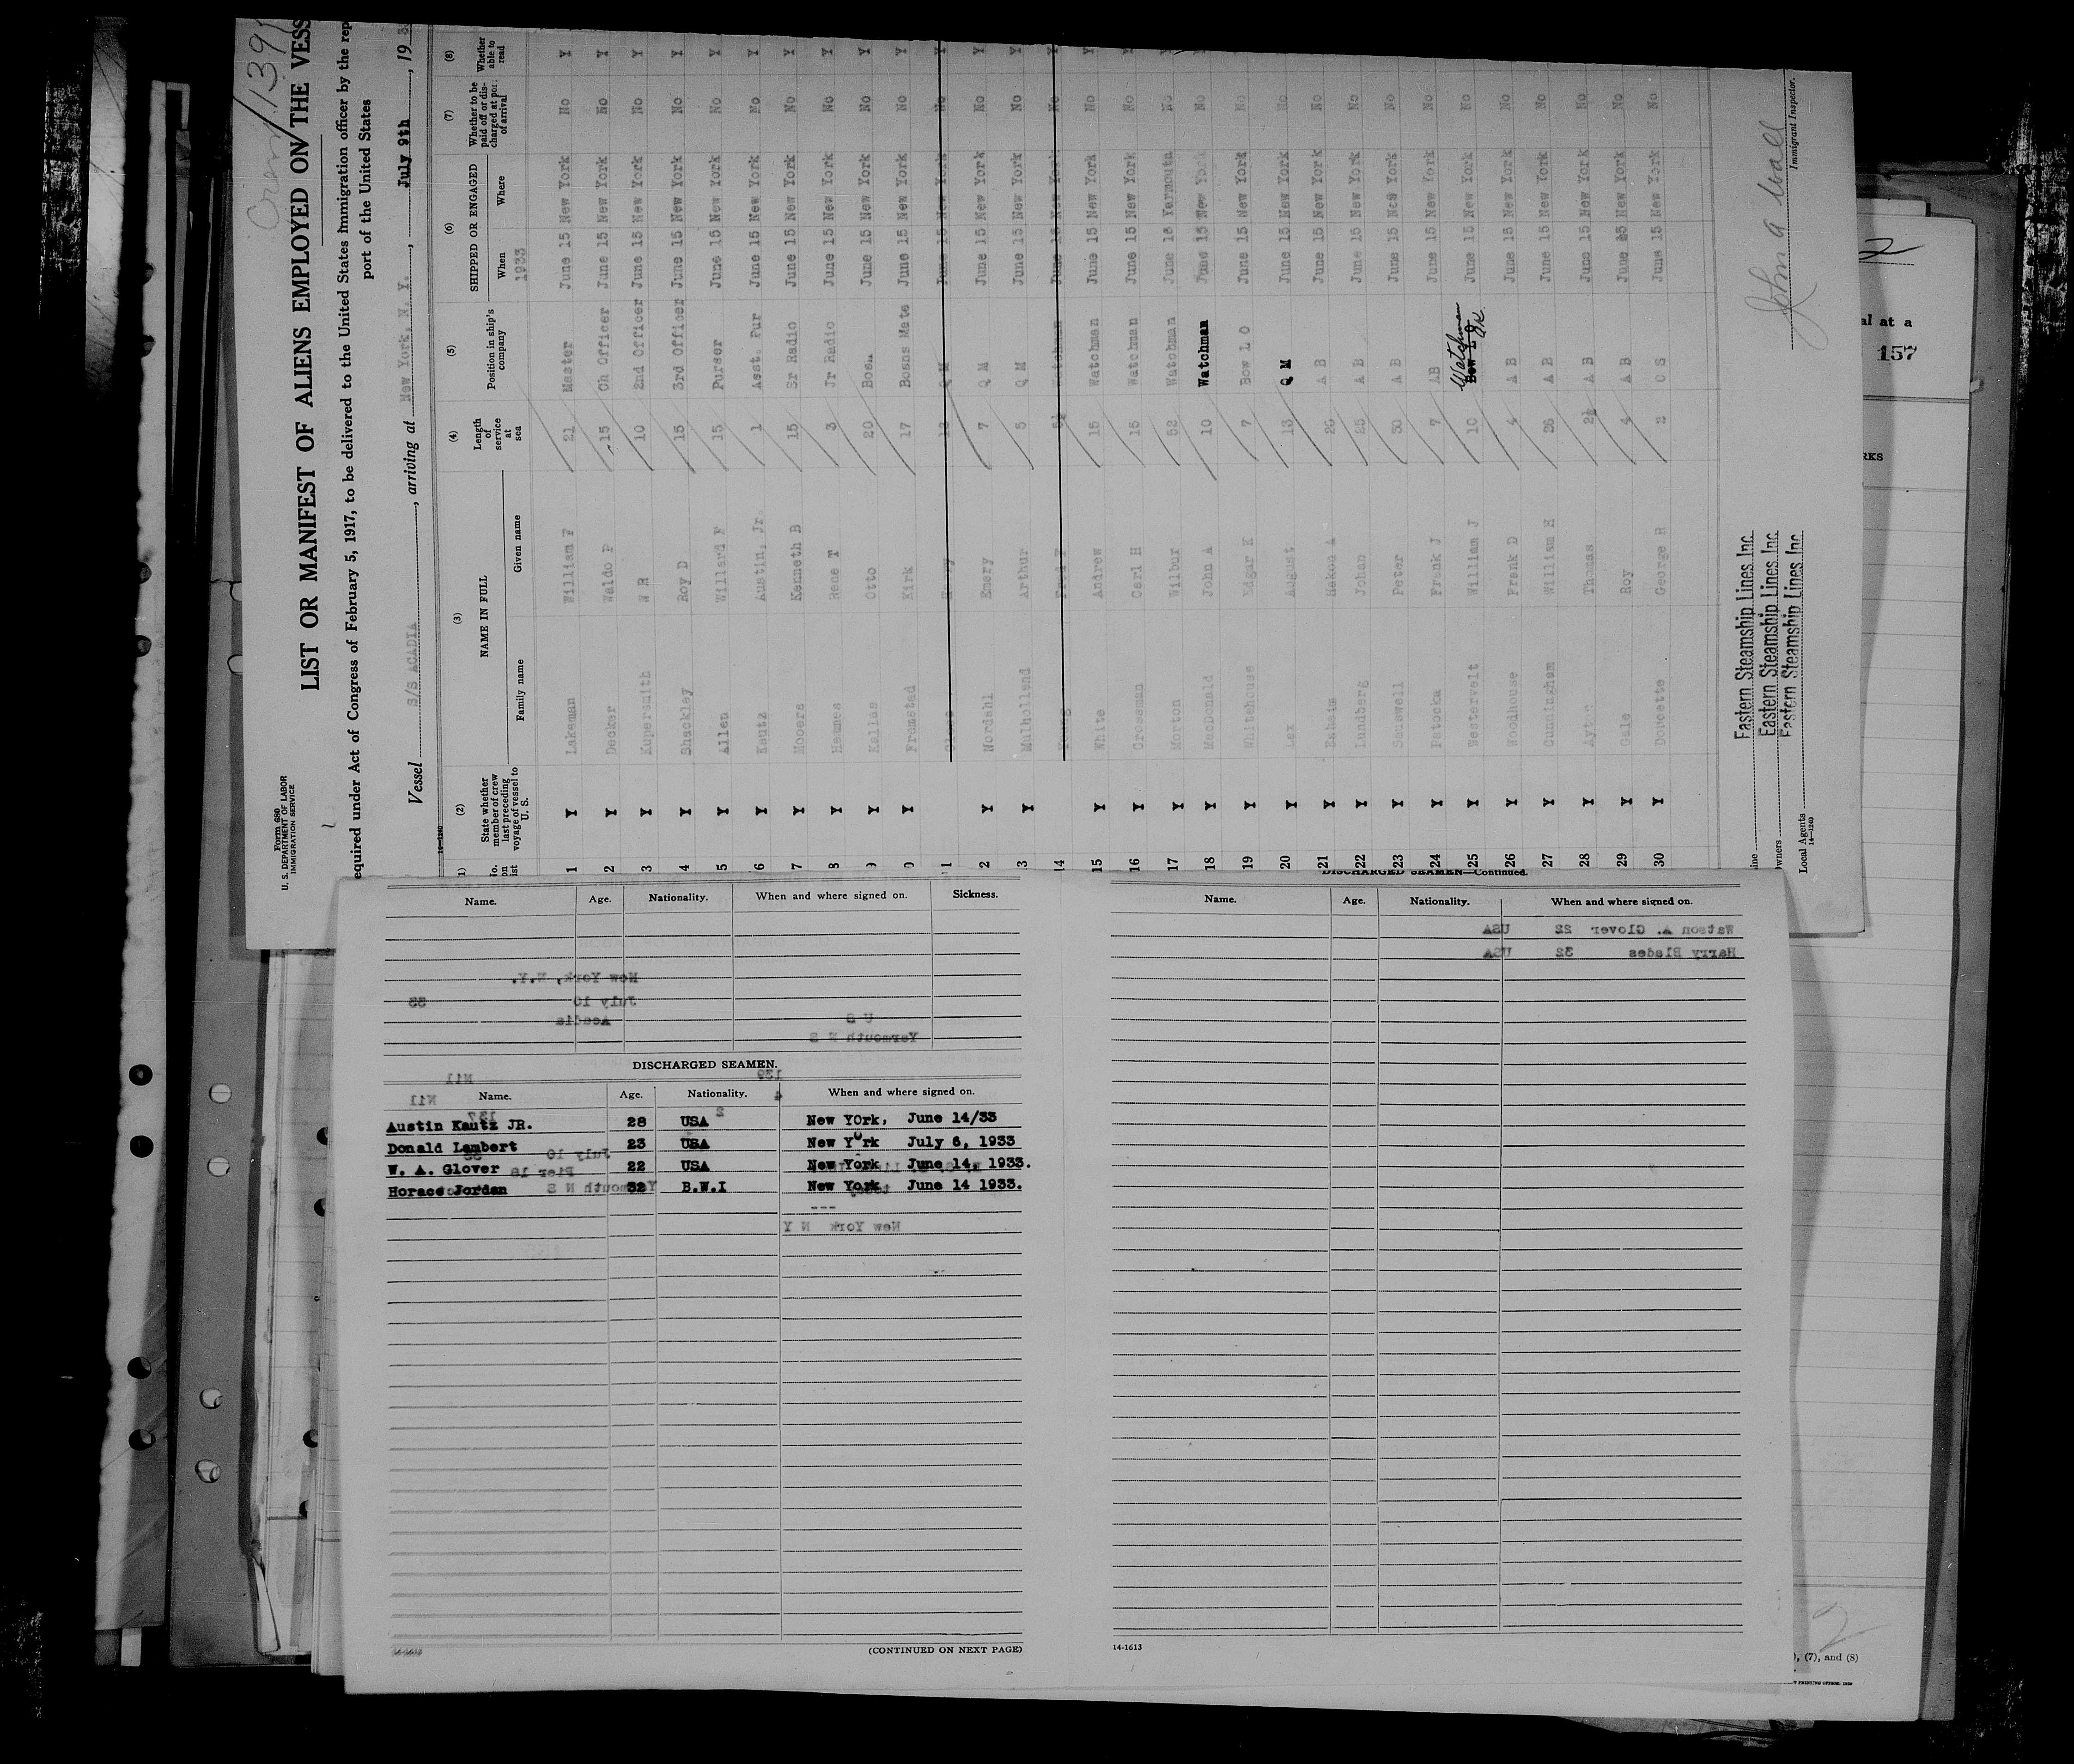 Crew/139
Form 680
U. S. DEPARTMENT OF LABOR
IMMIGRATION SERVICE
LIST OR MANIFEST OF ALIENS EMPLOYED ON THE VESS
equired under Act of Congress of February 5, 1917, to be delivered to the United States immigration officer by the rep
port of the United States
Vessel S/S ACADIA, arriving at New York, N. Y., July 9th, 19 3
14-1240
(1) (2) (3) (4) (5) (6) (7) (8)
No. on list State whether member of crew last preceding voyage of vessel to U. S. NAME IN FULL Length of service at sea Position in ship's company SHIPPED OR ENGAGED Whether to be paid off or discharged at port of arrival Whether able to read
Family name Given name When Where
1933
1 Y Lakeman William F 21 Master June 15 New York No Y
2 Y Decker Waldo P 15 Ch Officer June 15 New York No Y
3 Y Kupersmith W R 10 2nd Officer June 15 New York No Y
4 Y Shackley Roy D 15 3rd Officer June 15 New York No Y
5 Y Allen Willard F 15 Purser June 15 New York No Y
6 Y Kautz Austin, Jr. 1 Asst. Pur June 15 New York No Y
7 Y Mooers Kenneth B 15 Sr Radio June 15 New York No Y
8 Y Hemmes Rene T 3 Jr Radio June 15 New York No Y
9 Y Kallas Otto 20 Bosn June 15 New York No Y
0 Y Framstad Kirk 17 Bosns Mate June 15 New York No Y
1 Harry Q M June 15 New York No Y
2 Y Nordahl Emery 7 Q M June 15 New York No Y
3 Y Mulholland Arthur 5 Q M June 15 New York No Y
14 Fred F Watchman June 15 New York No Y
15 Y White Andrew 15 Watchman June 15 New York No Y
16 Y Crossman Carl H 15 Watchman June 15 New York No Y
17 Y Morton Wilbur 52 Watchman June 15 Yarmouth No Y
18 Y MacDonald John A 10 Watchman June 15 New York No
19 Y Whitehouse Edgar K 7 Bow L O June 15 New York No
20 Y Lex August 13 Q M June 15 New York No
21 Y Hakon A 26 A B June 15 New York No
22 Y Lundberg Johan 25 A B June 15 New York No
23 Y Sanswell Peter 30 A B June 15 New York No
24 Y Patocka Frank J 7 AB June 15 New York No
25 Y Westervelt William J 10 Bow L O Watchman June 15 New York No
26 Y Woodhouse Frank D 4 A B June 15 New York No
27 Y Cunningham William E 26 A B June 15 New York No
28 Y Thomas 2½ A B June 15 New York No
29 Y Gale Roy 4 A B June 15 New York No
30 Y Doucette George R 2 O S June 15 New York No
ine Eastern Steamship Lines Inc
wners Eastern Steamship Lines Inc
Local Agents Eastern Steamship Lines Inc
14-1240
John A Wall
Immigrant Inspector.
2
al at a
157
RKS
Name. Age. Nationality. When and where signed on. Sickness.
New York, N.Y.
July 10 33
Acadia
U S
Yarmouth N S
DISCHARGED SEAMEN.
Nil 139
Name. Age. Nationality. When and where signed on.
Nil 4
137 2
Austin Kautz JR. 28 USA New YOrk, June 14/33
Donald Lambert 23 USA New York July 6, 1933
July 10 33
W. A. Glover 22 USA New York June 14, 1933.
Pier 18
Horace Jordan 32 B.W.I New York June 14 1933.
Yarmouth N S
---
New York N Y
14-1613
(CONTINUED ON NEXT PAGE)
DISCHARGED SEAMEN—Continued.
Name. Age. Nationality. When and where signed on.
Watson A. Glover 22 USA
Harry Blades 32 USA
14-1613
2
), (7), and (8)